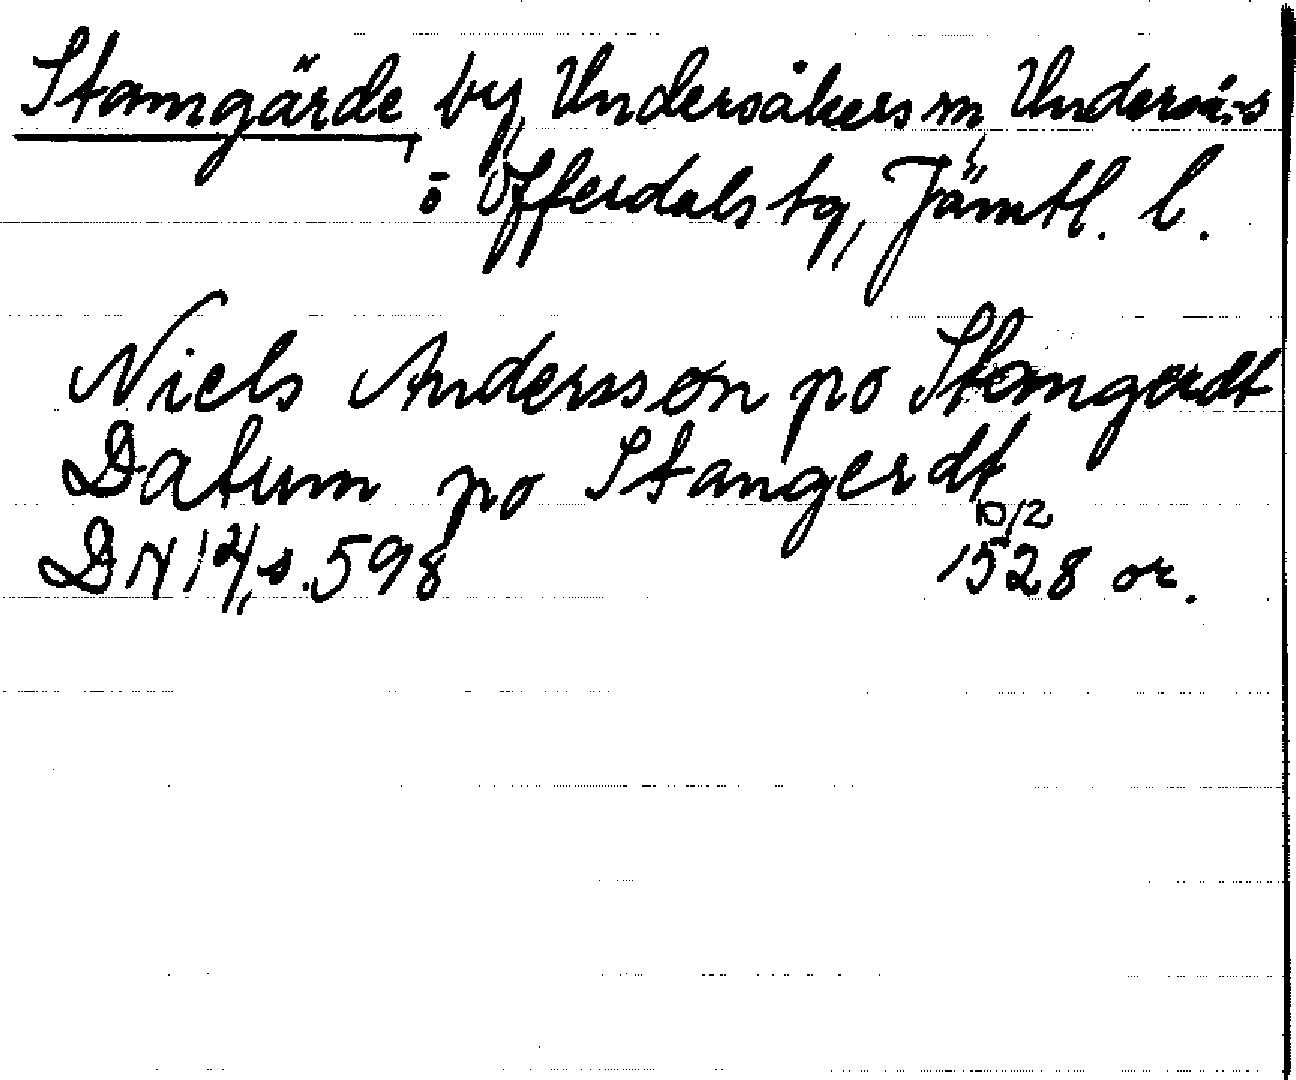 Stamgärde, by, Undersåkers sn, Underså:s
o Offerdals tg, Jämtl. l.
Niels Andersson po Stamgerdt
Datum po Stangerdt
DN 14, s. 598 10/2 1528 or.